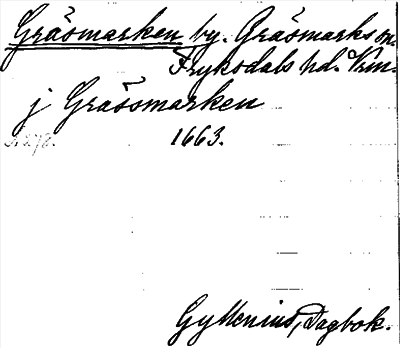 Gräsmarken by. Gräsmarks sn.
Fryksdals hd. Vrm.
j Grässmarken
1663.
Gyllenius, Dagbok.